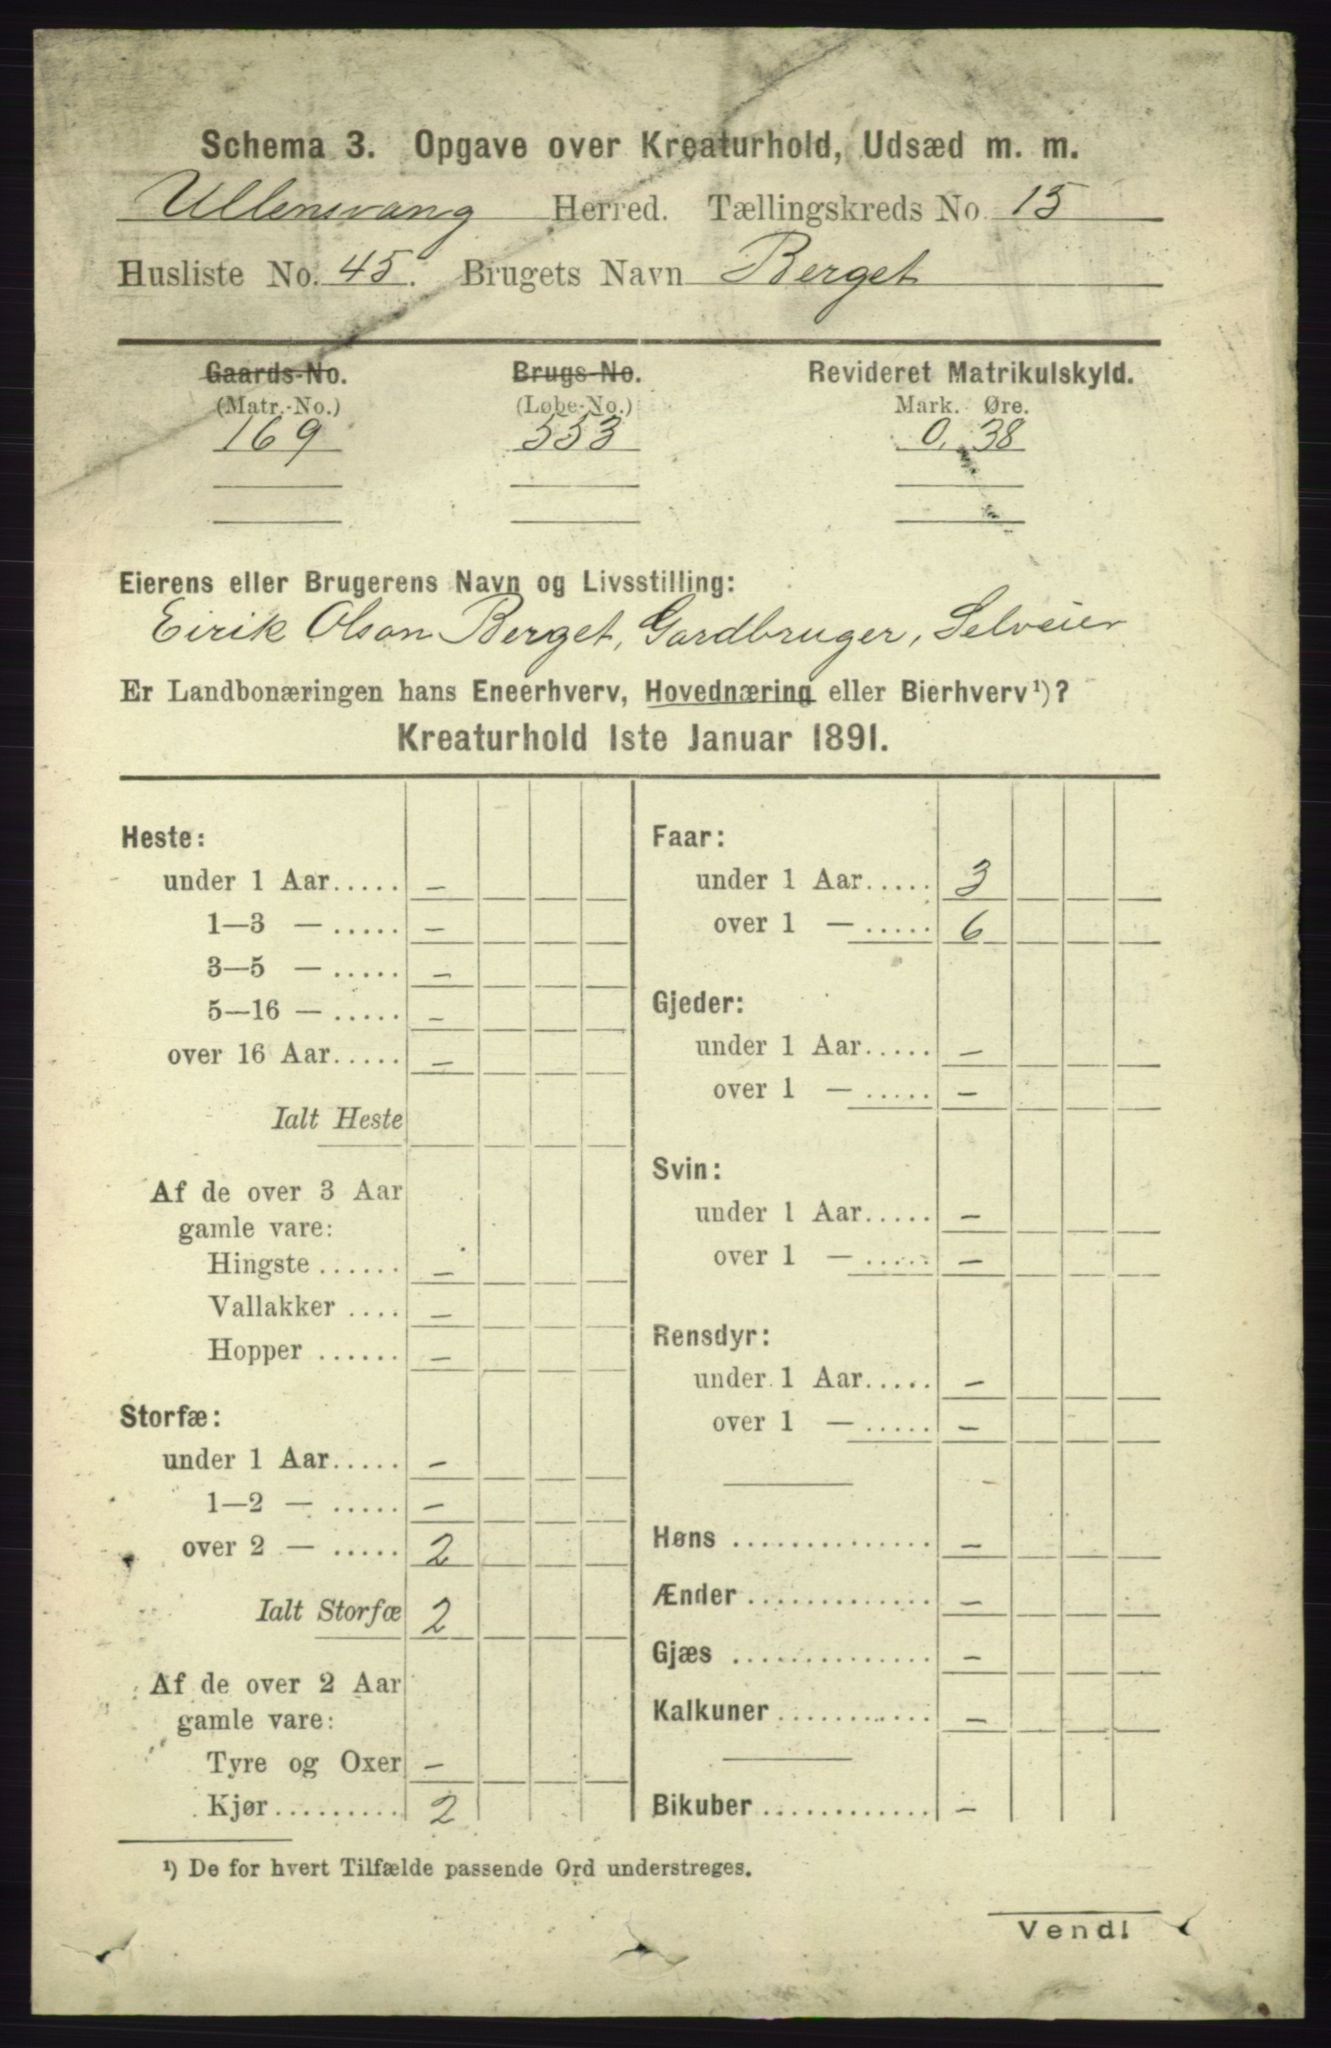 Schema 3. Opgave over Kreaturhold, Udsæd m. m.
Ullensvang Herred. Tællingskreds No. 15
Husliste No. 45. Brugets Navn Berget
Gaards-No. Brugs-No. Revideret Matrikulskyld.
(Matr.-No.) (Løbe-No.) Mark. Øre.
169 553 0, 38
Eierens eller Brugerens Navn og Livsstilling:
Eirik Olson Berget, Gardbruger, Selveier
Er Landbonæringen hans Eneerhverv, Hovednæring eller Bierhverv¹)?
Kreaturhold 1ste Januar 1891.
Heste:
under 1 Aar..... –
1—3 — ..... –
3—5 — ..... –
5—16 — ..... –
over 16 Aar..... –
Ialt Heste
Af de over 3 Aar
gamle vare:
Hingste ...... –
Vallakker .... –
Hopper ...... –
Storfæ:
under 1 Aar..... –
1—2 — ..... –
over 2 — ..... 2
Ialt Storfæ 2
Af de over 2 Aar
gamle vare:
Tyre og Oxer –
Kjør......... 2
Faar:
under 1 Aar..... 3
over 1 — ..... 6
Gjeder:
under 1 Aar..... –
over 1 — ..... –
Svin:
under 1 Aar..... –
over 1 — ..... –
Rensdyr:
under 1 Aar..... –
over 1 — ..... –
Høns .............. –
Ænder ............. –
Gjæs .............. –
Kalkuner ........... –
Bikuber ............. –
¹) De for hvert Tilfælde passende Ord understreges.
Vend!